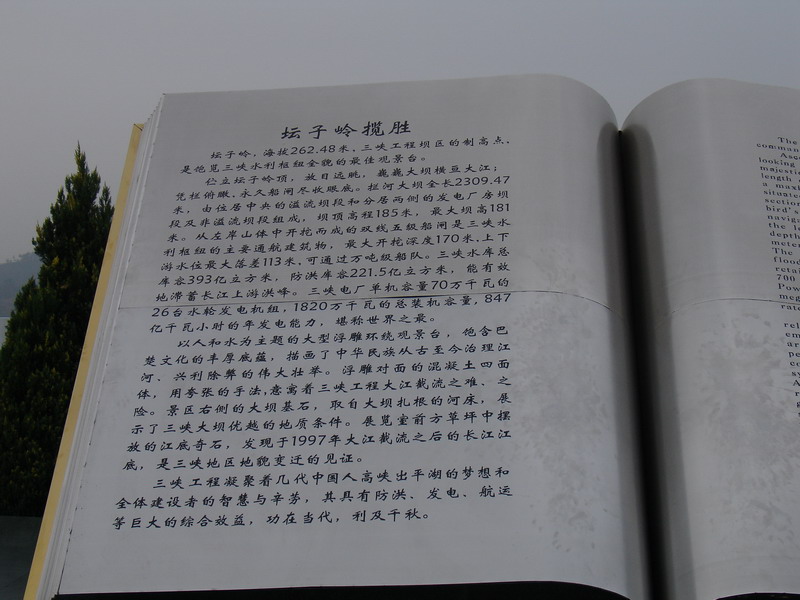 坛子岭揽胜
坛子岭，海拔262.48米，三峡工程坝区的制高点，
是饱览三峡水利枢纽全貌的最佳观景台。
伫立坛子岭顶，放目远眺，巍巍大坝横亘大江；
凭栏俯瞰，永久船闸尽收眼底。拦河大坝全长2309.47
米，由位居中央的溢流坝段和分居两侧的发电厂房坝
段及非溢流坝段组成，坝顶高程185米，最大坝高181
米。从左岸山体中开挖而成的双线五级船闸是三峡水
利枢纽的主要通航建筑物，最大开挖深度170米，上下
游水位最大落差113米，可通过万吨级船队。三峡水库总
库容393亿立方米，防洪库容221.5亿立方米，能有效
地滞蓄长江上游洪峰。三峡电厂单机容量70万千瓦的
26台水轮发电机组，1820万千瓦的总装机容量，847
亿千瓦小时的年发电能力，堪称世界之最。
以人和水为主题的大型浮雕环绕观景台，饱含巴
楚文化的丰厚底蕴，描画了中华民族从古至今治理江
河、兴利除弊的伟大壮举。浮雕对面的混凝土四面
体，用夸张的手法，意寓着三峡工程大江截流之难、之
险。景区右侧的大坝基石，取自大坝扎根的河床，展
示了三峡大坝优越的地质条件。展览室前方草坪中摆
放的江底奇石，发现于1997年大江截流之后的长江江
底，是三峡地区地貌变迁的见证。
三峡工程凝聚着几代中国人高峡出平湖的梦想和
全体建设者的智慧与辛劳，其具有防洪、发电、航运
等巨大的综合效益，功在当代，利及千秋。
The
comman
Asce
looking
majesti
length
a maxi
situate
section
bird's
naviga
the l
depth
mete
The
flood
reta
700
Pow
meg
rate